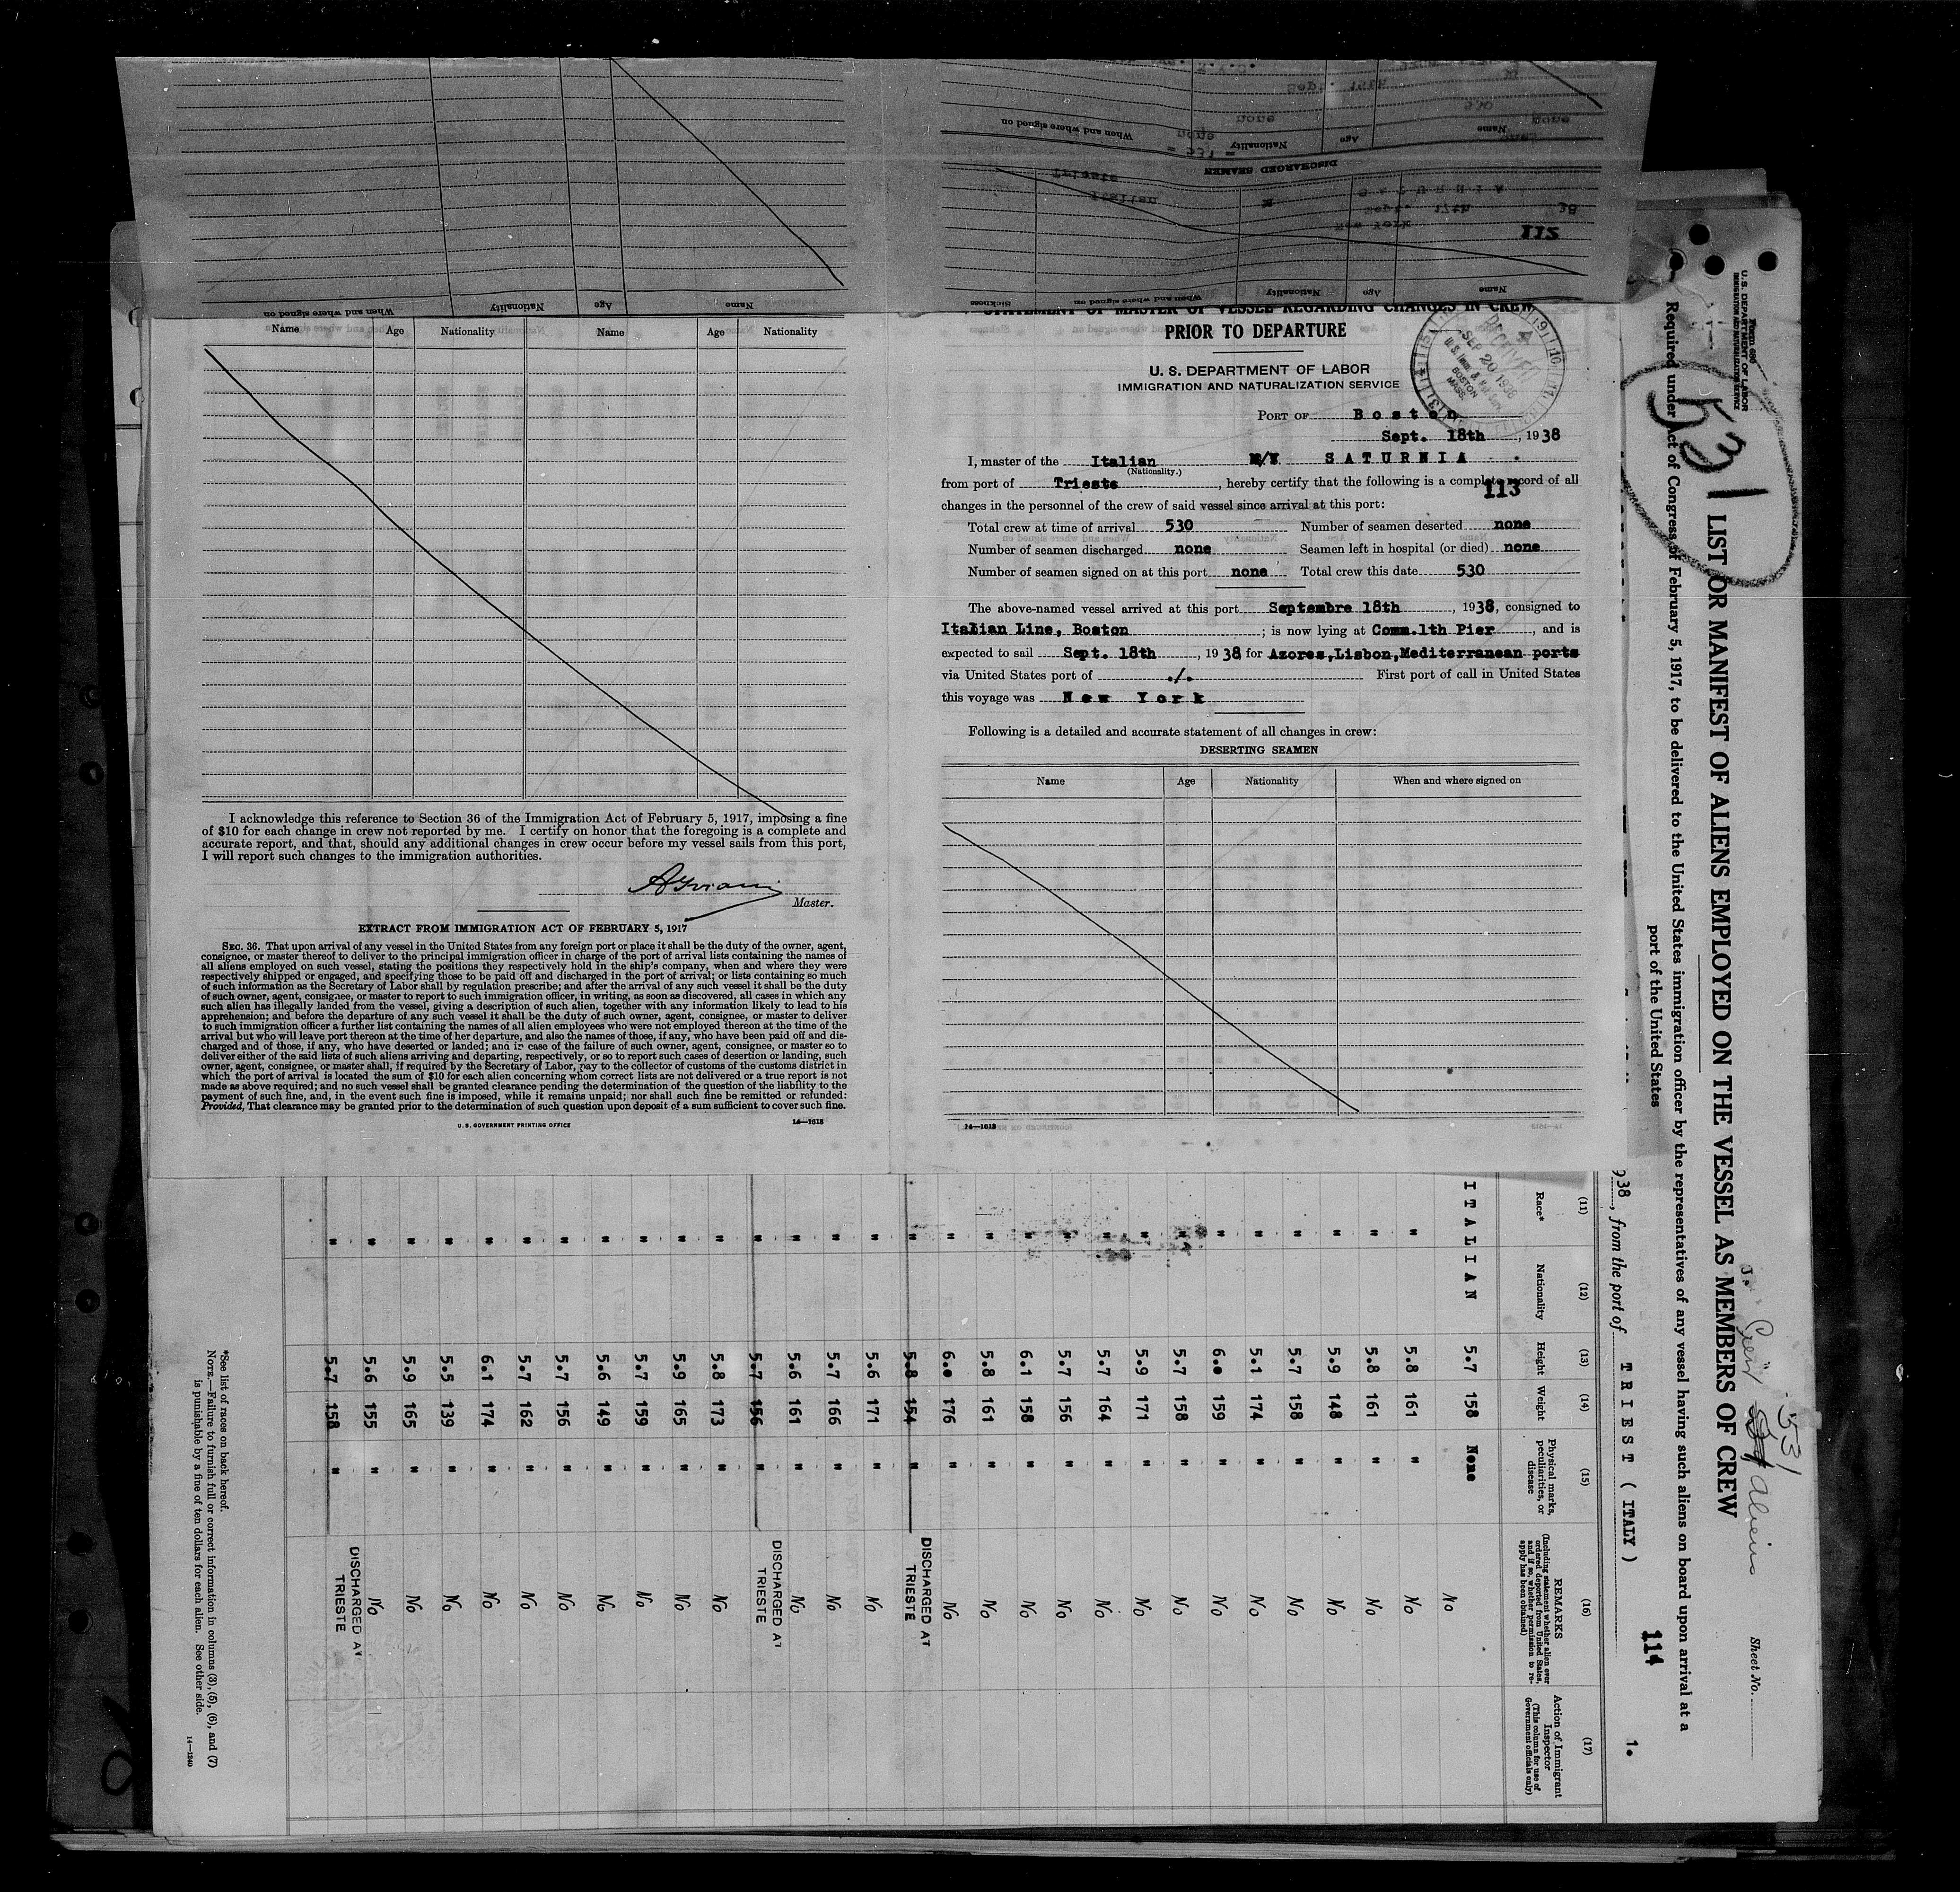 Name Age Nationality Name Age Nationality
I acknowledge this reference to Section 36 of the Immigration Act of February 5, 1917, imposing a fine
of $10 for each change in crew not reported by me. I certify on honor that the foregoing is a complete and
accurate report, and that, should any additional changes in crew occur before my vessel sails from this port,
I will report such changes to the immigration authorities.
Master.
EXTRACT FROM IMMIGRATION ACT OF FEBRUARY 5, 1917
SEC. 36. That upon arrival of any vessel in the United States from any foreign port or place it shall be the duty of the owner, agent,
consignee, or master thereof to deliver to the principal immigration officer in charge of the port of arrival lists containing the names of
all aliens employed on such vessel, stating the positions they respectively hold in the ship's company, when and where they were
respectively shipped or engaged, and specifying those to be paid off and discharged in the port of arrival; or lists containing so much
of such information as the Secretary of Labor shall by regulation prescribe; and after the arrival of any such vessel it shall be the duty
of such owner, agent, consignee, or master to report to such immigration officer, in writing, as soon as discovered, all cases in which any
such alien has illegally landed from the vessel, giving a description of such alien, together with any information likely to lead to his
apprehension; and before the departure of any such vessel it shall be the duty of such owner, agent, consignee, or master to deliver
to such immigration officer a further list containing the names of all alien employees who were not employed thereon at the time of the
arrival but who will leave port thereon at the time of her departure, and also the names of those, if any, who have been paid off and dis-
charged and of those, if any, who have deserted or landed; and in case of the failure of such owner, agent, consignee, or master so to
deliver either of the said lists of such aliens arriving and departing, respectively, or so to report such cases of desertion or landing, such
owner, agent, consignee, or master shall, if required by the Secretary of Labor, pay to the collector of customs of the customs district in
which the port of arrival is located the sum of $10 for each alien concerning whom correct lists are not delivered or a true report is not
made as above required; and no such vessel shall be granted clearance pending the determination of the question of the liability to the
payment of such fine, and, in the event such fine is imposed, while it remains unpaid; nor shall such fine be remitted or refunded:
Provided, That clearance may be granted prior to the determination of such question upon deposit of a sum sufficient to cover such fine.
U. S. GOVERNMENT PRINTING OFFICE 14—1613
STATEMENT OF MASTER OF VESSEL REGARDING CHANGES IN CREW
PRIOR TO DEPARTURE
U. S. DEPARTMENT OF LABOR
IMMIGRATION AND NATURALIZATION SERVICE
RECEIVED
SEP 20 1938
BOSTON
MASS.
PORT OF Boston
Sept. 18th, 1938
I, master of the Italian M/V SATURNIA
(Nationality.)
from port of Trieste, hereby certify that the following is a complete record of all
113
changes in the personnel of the crew of said vessel since arrival at this port:
Total crew at time of arrival 530 Number of seamen deserted none
Number of seamen discharged none Seamen left in hospital (or died) none
Number of seamen signed on at this port none Total crew this date 530
The above-named vessel arrived at this port Septembre 18th, 1938, consigned to
Italian Line, Boston; is now lying at Comm.lth Pier, and is
expected to sail Sept. 18th, 1938, for Azores,Lisbon,Mediterranean ports
via United States port of ./. First port of call in United States
this voyage was New York
Following is a detailed and accurate statement of all changes in crew:
DESERTING SEAMEN
Name Age Nationality When and where signed on
14—1613
Form 680
U. S. DEPARTMENT OF LABOR
IMMIGRATION AND NATURALIZATION SERVICE
531
531
aliens
Sheet No.
LIST OR MANIFEST OF ALIENS EMPLOYED ON THE VESSEL AS MEMBERS OF CREW
Required under Act of Congress of February 5, 1917, to be delivered to the United States immigration officer by the representatives of any vessel having such aliens on board upon arrival at a
port of the United States
114
938, from the port of TRIEST (ITALY) 1.
(11) (12) (13) (14) (15) (16) (17)
Race* Nationality Height Weight Physical marks, peculiarities, or disease REMARKS (Including statement whether alien ever ordered deported from United States, and if so, whether permission to re-apply has been obtained) Action of Immigrant Inspector (This column for use of Government officials only)
ITALIAN 5.7 158 None No
" 5.8 161 " No
" 5.8 161 " No
" 5.9 148 " No
" 5.7 158 " No
" 5.1 174 " No
" 6.0 159 " No
" 5.7 158 " No
" 5.9 171 " No
" 5.7 164 " No
" 5.7 156 " No
" 6.1 158 " No
" 5.8 161 " No
" 6.0 176 " No
" 5.8 154 " DISCHARGED AT TRIESTE
" 5.6 171 " No
" 5.7 166 " No
" 5.6 161 " No
" 5.7 156 " DISCHARGED AT TRIESTE
" 5.8 173 " No
" 5.9 165 " No
" 5.7 159 " No
" 5.6 149 " No
" 5.7 156 " No
" 5.7 162 " No
" 6.1 174 " No
" 5.5 139 " No
" 5.9 165 " No
" 5.6 155 " No
" 5.7 158 " DISCHARGED AT TRIESTE
*See list of races on back hereof.
NOTE.—Failure to furnish full or correct information in columns (3), (5), (6), and (7)
is punishable by a fine of ten dollars for each alien. See other side.
14—1240